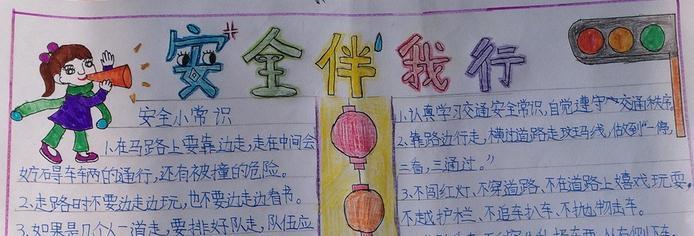 安全伴我行
安全小常识
1.在马路上要靠边走,走在中间会
妨碍车辆的通行,还有被撞的危险。
2.走路时不要边走边玩,也不要边走边看书。
3.如果是几个人一道走,要排好队走,队伍应
1.认真学习交通安全常识,自觉遵守交通秩序
2、靠路边行走,横过道路走斑马线,做到“一停,
二看,三通过。”
3、不闯红灯、不穿道路、不在道路上嬉戏玩耍,
不越护栏、不追车扒车、不抛物击车。